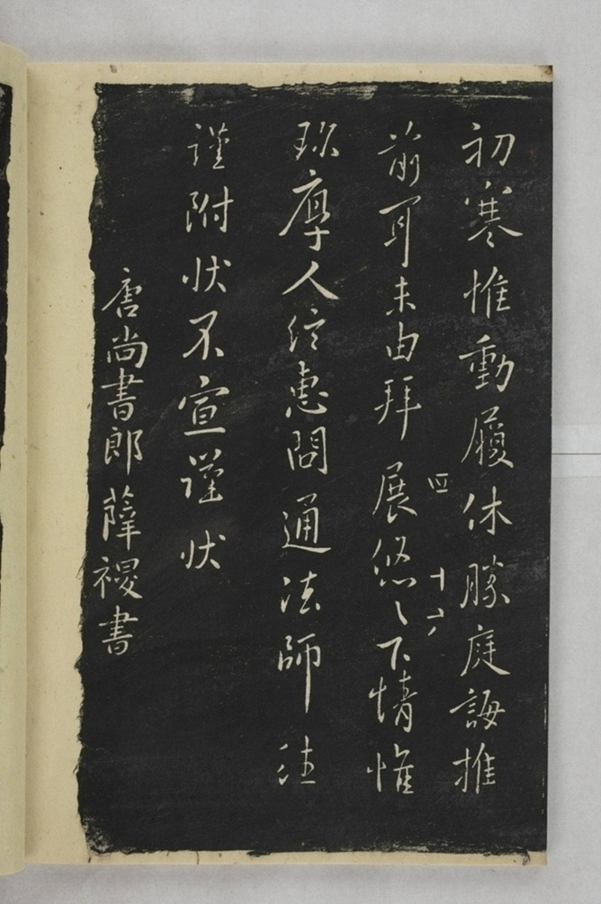 初寒惟動履休勝庭誨推
前耳未由拜展悠〻下情惟
珎庫人信惠問通法師注
謹附状不宣謹状
唐尚書郎薛稷書
四
十六